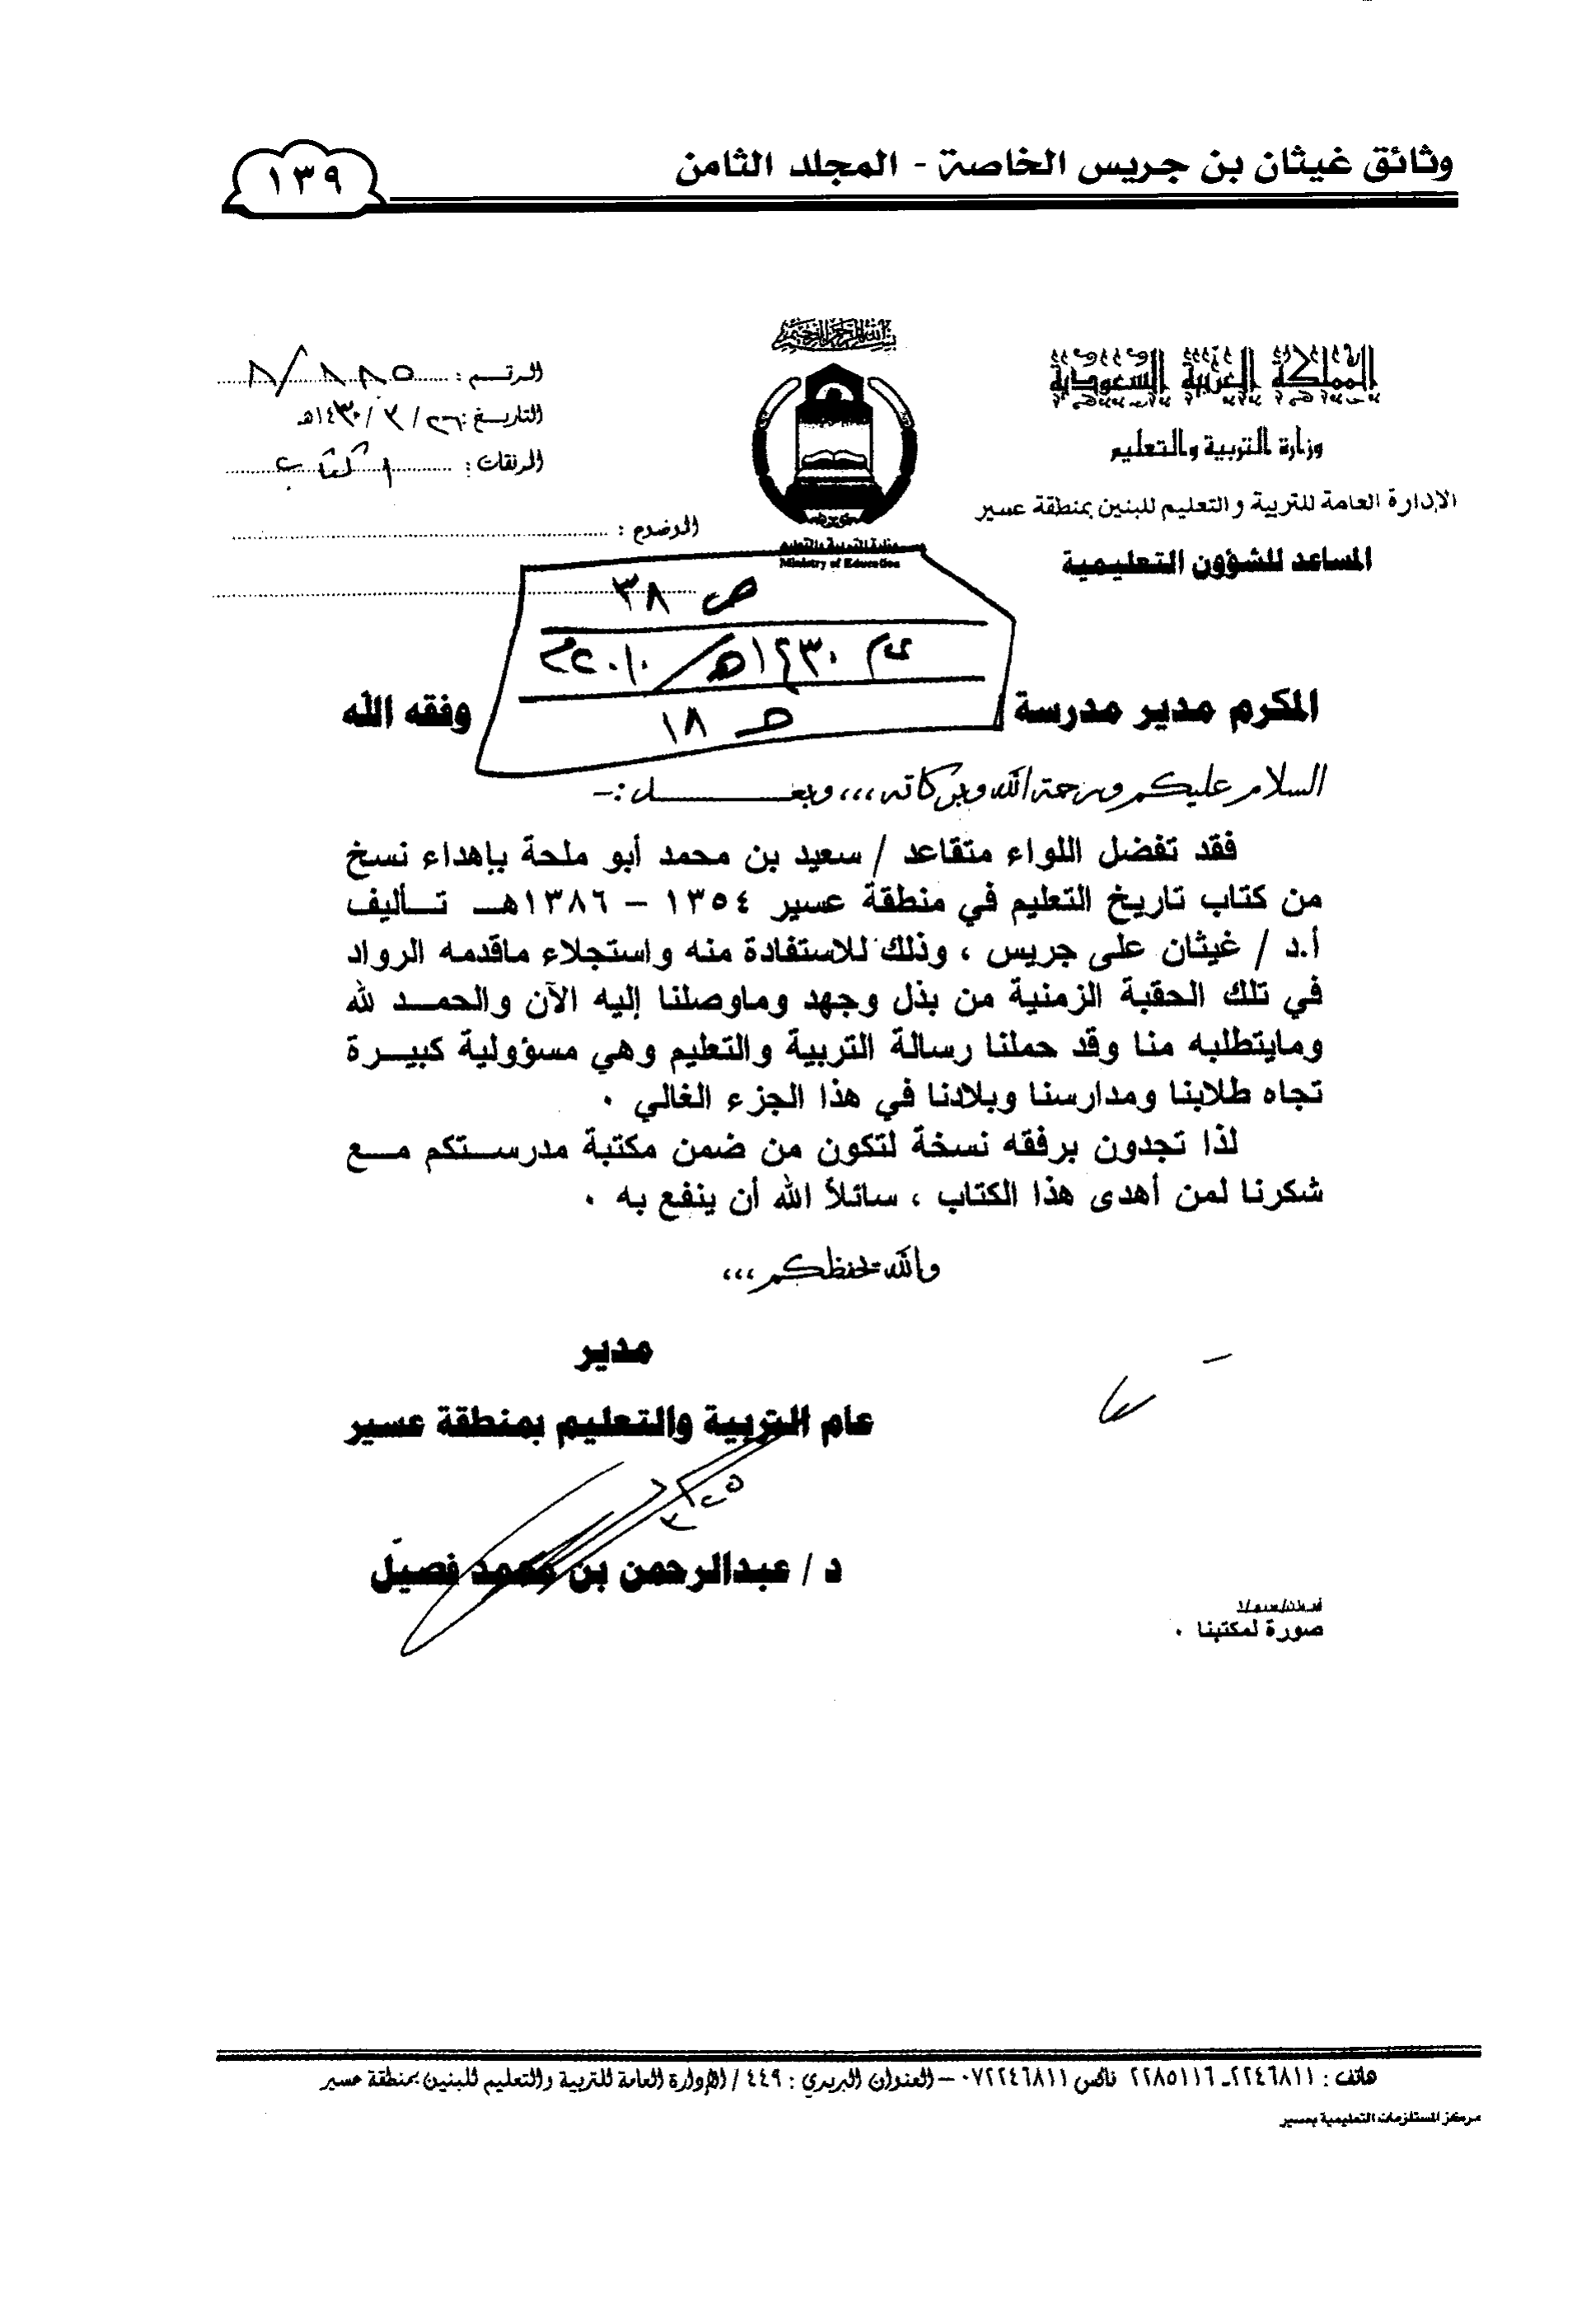 وثائق غيثان بن جريس الخاصة - المجلد الثامن
١٣٩
بسم الله الرحمن الرحيم
المملكة العربية السعودية
وزارة التربية والتعليم
الإدارة العامة للتربية والتعليم للبنين بمنطقة عسير
المساعد للشؤون التعليمية
وزارة التربية والتعليم
Ministry of Education
الرقم :
التاريخ : ٢٦ / ٣ / ١٤٣٠هـ
المرفقات :
الموضوع :
ص ٣٨
١٤٣٠هـ / ٢٠١٠م
ص ١٨
المكرم مدير مدرسة وفقه الله
السلام عليكم ورحمة الله وبركاته ،،، وبعــــــد :-
فقد تفضل اللواء متقاعد / سعيد بن محمد أبو ملحة بإهداء نسخ
من كتاب تاريخ التعليم في منطقة عسير ١٣٥٤ – ١٣٨٦هـ تـأليف
أ.د / غيثان على جريس ، وذلك للاستفادة منه واستجلاء ماقدمه الرواد
في تلك الحقبة الزمنية من بذل وجهد وماوصلنا إليه الآن والحمـد لله
ومايتطلبه منا وقد حملنا رسالة التربية والتعليم وهي مسؤولية كبيـرة
تجاه طلابنا ومدارسنا وبلادنا في هذا الجزء الغالي .
لذا تجدون برفقه نسخة لتكون من ضمن مكتبة مدرسـتكم مـع
شكرنا لمن أهدى هذا الكتاب ، سائلاً الله أن ينفع به .
والله يحفظكم ،،،
مدير
عام التربية والتعليم بمنطقة عسير
د / عبدالرحمن بن محمد فصيل
صورة لمكتبنا .
هاتف : ٢٢٤٦٨١١ـ ٢٢٨٥١١٦ فاكس ٠٧٢٢٤٦٨١١ – العنوان البريدي : ٤٤٩ / الإدارة العامة للتربية والتعليم للبنين بمنطقة عسير
مركز المستلزمات التعليمية بعسير